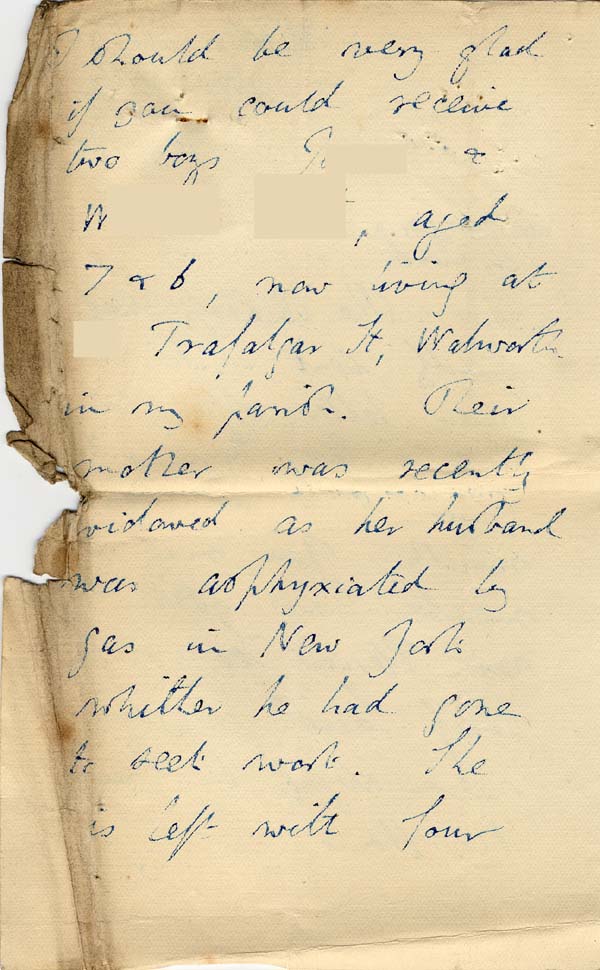 I should be very glad
if you could receive
two boys T &
W , aged
7 & 6, now living at
Trafalgar St, Walworth
in my parish. Their
mother was recently
widowed as her husband
was asphyxiated by
gas in New York
whither he had gone
to seek work. She
is left with four